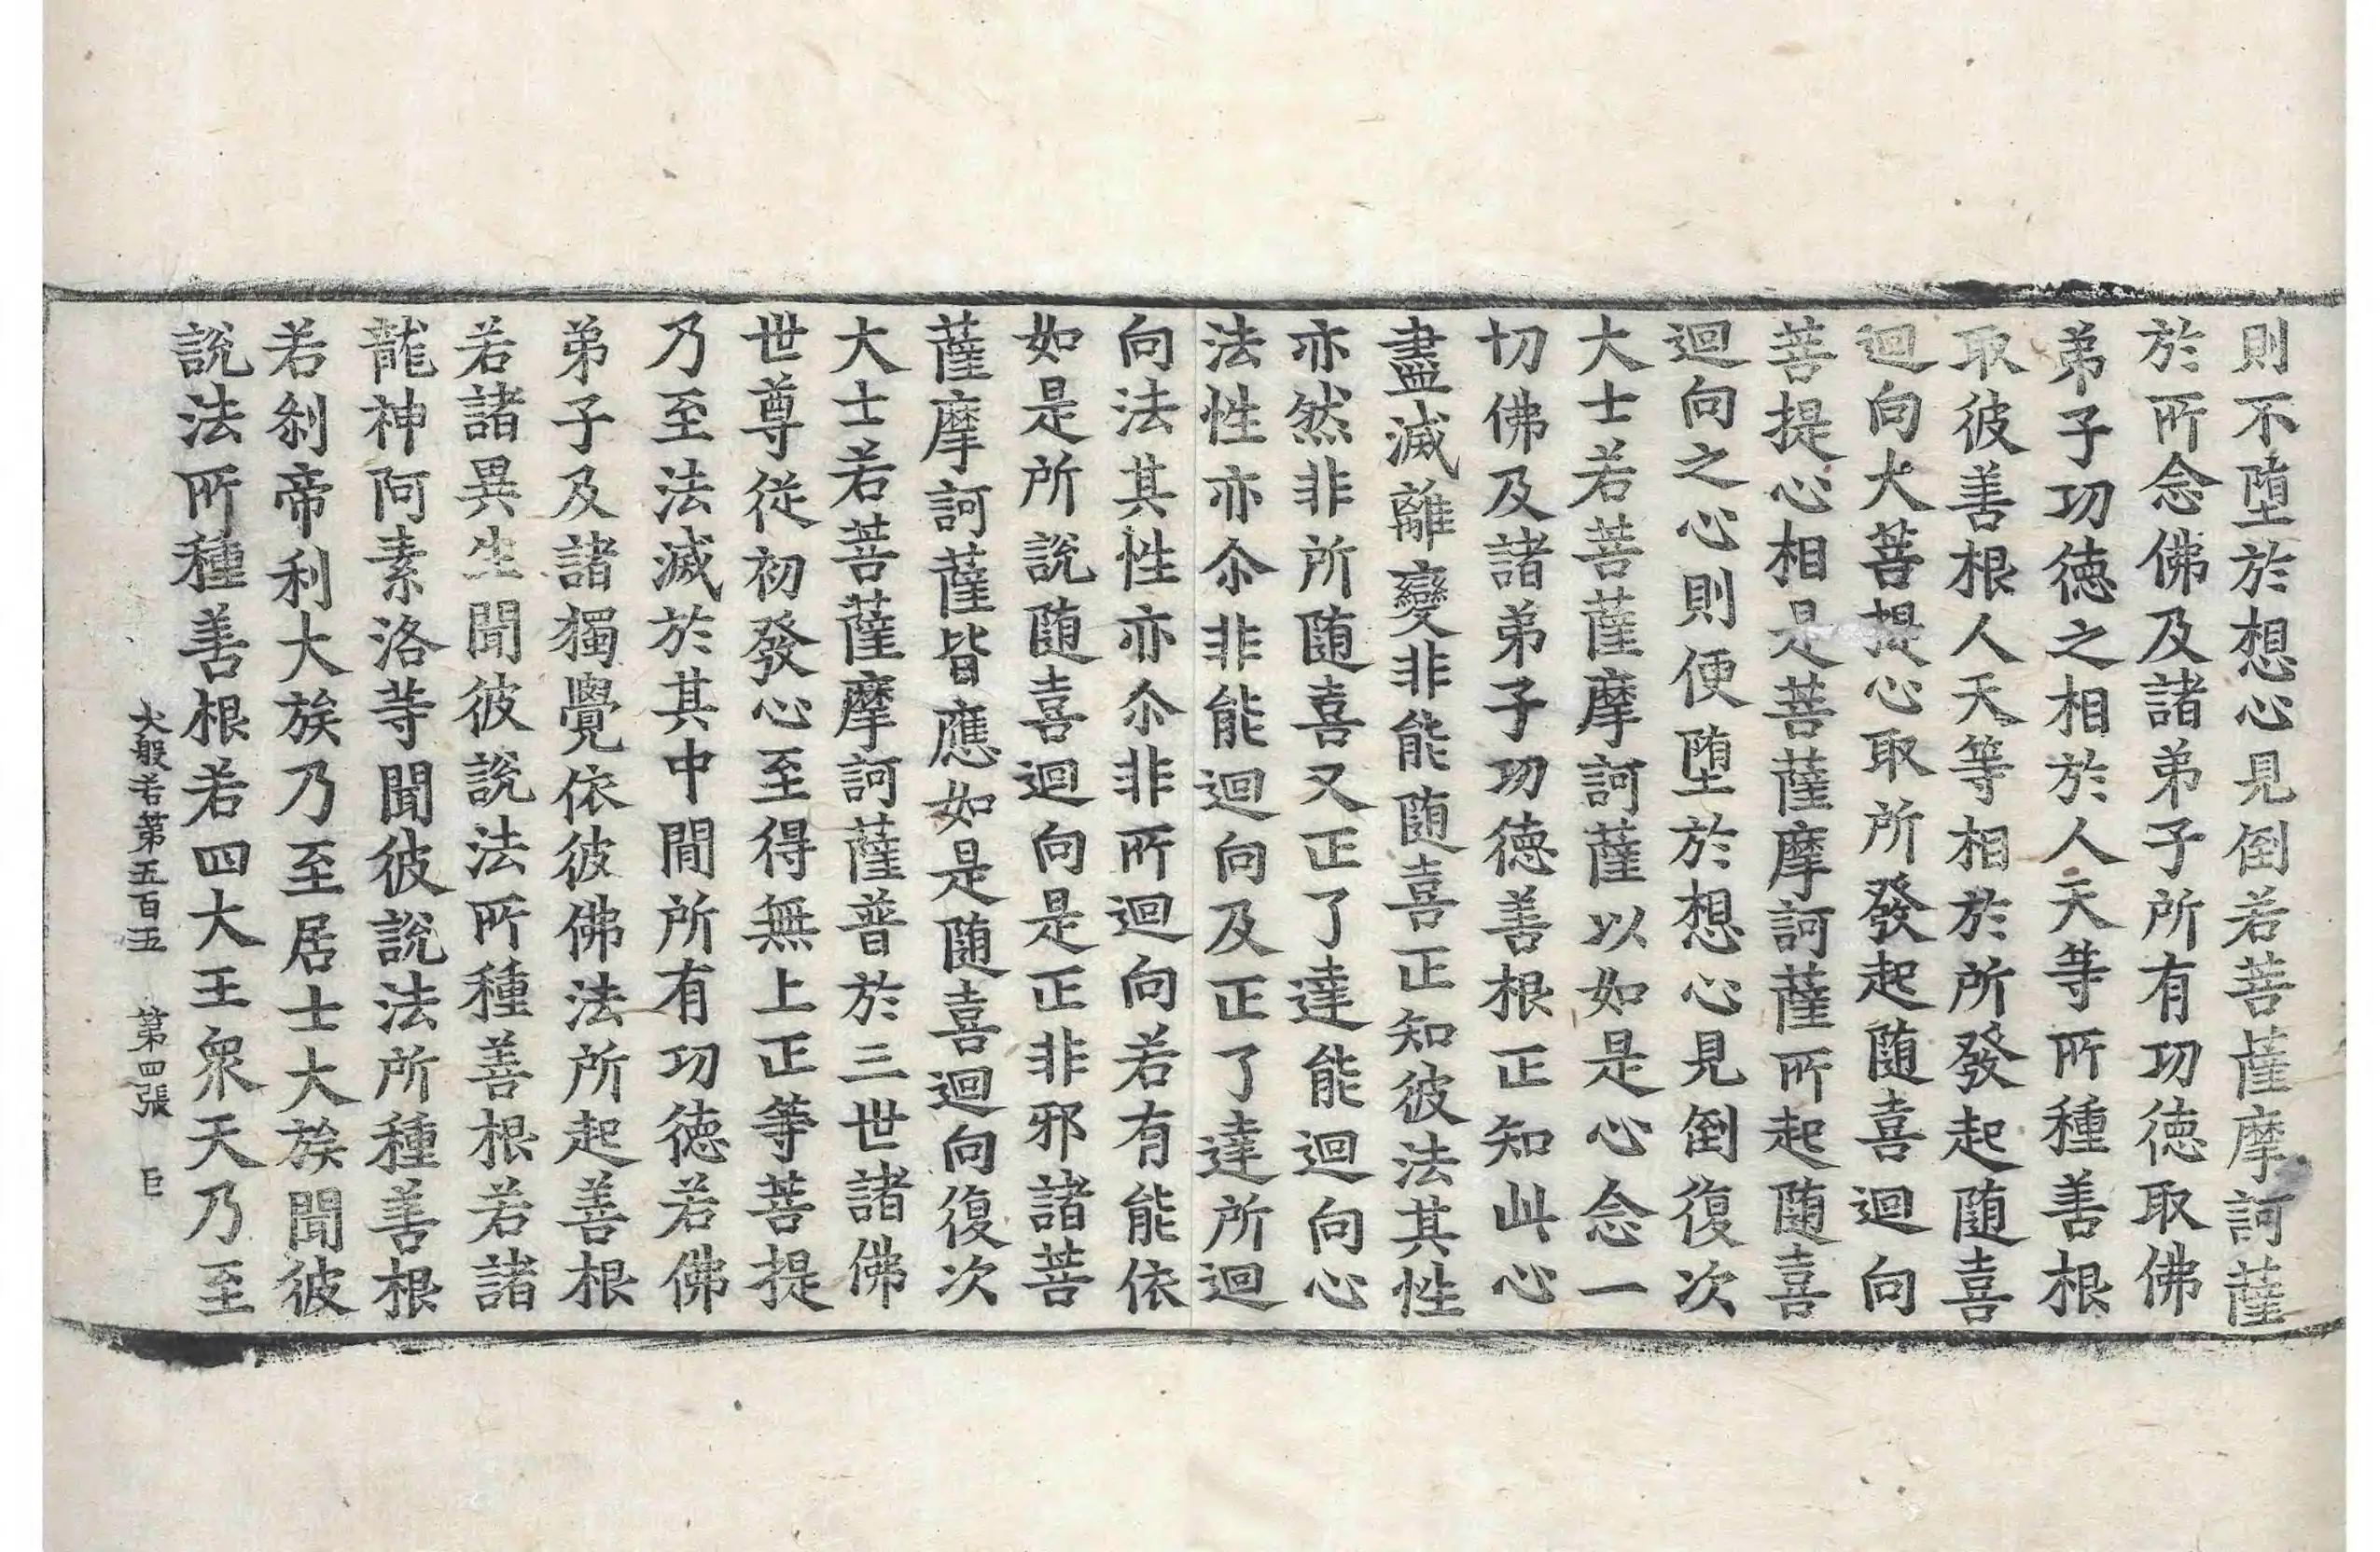 則不墮於想心見倒若菩薩摩訶薩
於所念佛及諸弟子所有功德取佛
弟子功德之相於人天等所種善根
取彼善根人天等相於所發起随喜
迴向大菩提心取所發起随喜迴向
菩提心相是菩薩摩訶薩所起随喜
迴向之心則便墮於想心見倒復次
大士若菩薩摩訶薩以如是心念一
切佛及諸弟子功德善根正知此心
盡滅離變非能随喜正知彼法其性
亦然非所随喜又正了達能迴向心
法性亦尒非能迴向及正了達所迴
向法其性亦尒非所迴向若有能依
如是所說随喜迴向是正非邪諸菩
薩摩訶薩皆應如是随喜迴向復次
大士若菩薩摩訶薩普於三世諸佛
世尊從初發心至得無上正等菩提
乃至法滅於其中閒所有功德若佛
弟子及諸獨覺依彼佛法所起善根
若諸異生聞彼說法所種善根若諸
龍神阿素洛等聞彼說法所種善根
若刹帝利大族乃至居士大族聞彼
說法所種善根若四大王衆天乃至
大般若第五百五 第四張 巨